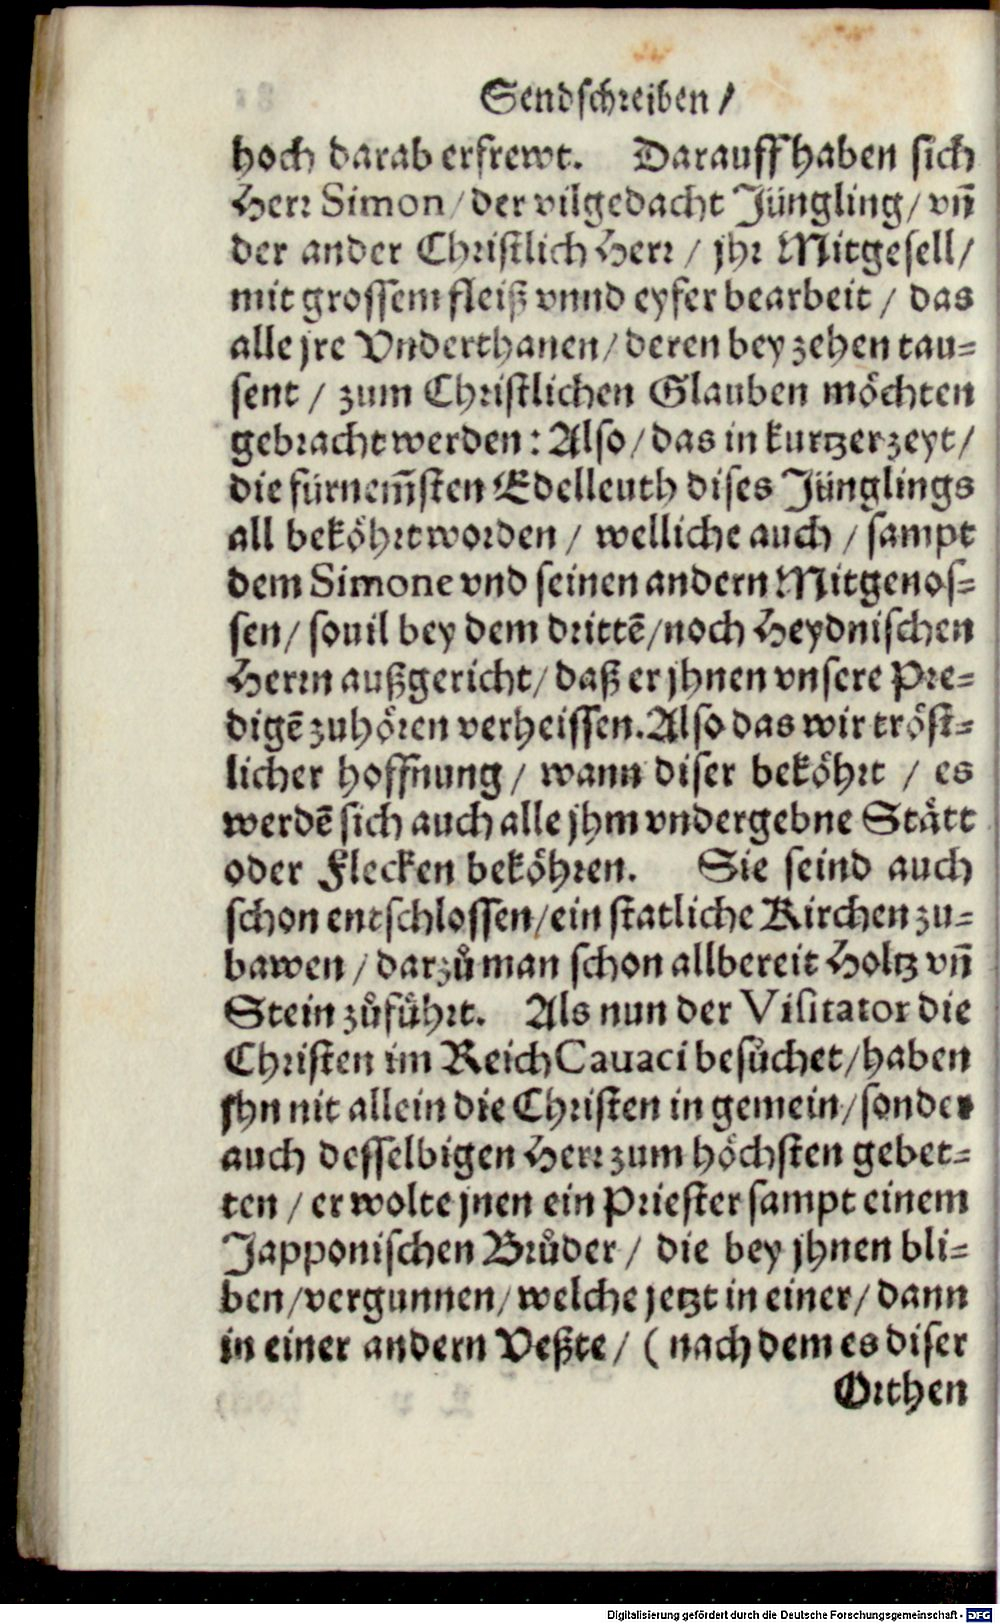 Sendschreiben /
hoch darab erfrewt. Darauff haben sich
Herr Simon / der vilgedacht Jüngling / vñ
der ander Christlich Herr / jhr Mitgesell /
mit grossem fleiß vnnd eyfer bearbeit / das
alle jre Vnderthanen / deren bey zehen tau=
sent / zum Christlichen Glauben möchten
gebracht werden : Also / das in kurtzer zeyt /
die fürnem̃sten Edelleuth dises Jünglings
all beköhrt worden / welliche auch / sampt
dem Simone vnd seinen andern Mitgenos=
sen / souil bey dem drittẽ / noch Heydnischen
Herrn außgericht / daß er jhnen vnsere Pre=
digẽ zuhören verheissen. Also das wir tröst=
licher hoffnung / wann diser beköhrt / es
werdẽ sich auch alle jhm vndergebne Stätt
oder Flecken beköhren. Sie seind auch
schon entschlossen / ein statliche Kirchen zu=
bawen / darzů man schon allbereit Holtz vñ
Stein zůführt. Als nun der Visitator die
Christen im Reich Cauaci besůchet / haben
jhn nit allein die Christen in gemein / sonder
auch desselbigen Herr zum höchsten gebet=
ten / er wolte jnen ein Priester sampt einem
Japponischen Brůder / die bey jhnen bli=
ben / vergunnen / welche jetzt in einer / dann
in einer andern Veßte / ( nach dem es diser
Orthen
Digitalisierung gefördert durch die Deutsche Forschungsgemeinschaft - DFG